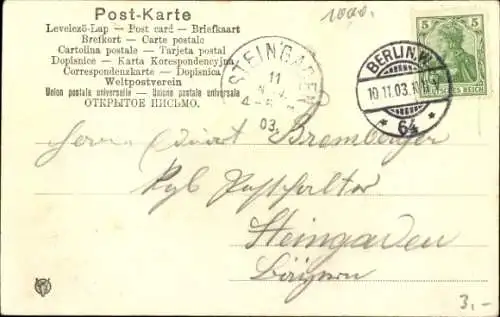 Post-Karte
Levelezö-Lap — Post card — Briefkaart
Brefkort — Carte postale
Cartolina postale — Tarjeta postal
Dopisnice — Karta Korespondencyjna
Correspondenzkarte — Dopisnica
Weltpostverein
Union postale universelle — Unione postale universale
ОТКРЫТОЕ ПИСЬМО.
STEINGADEN
11
03.
BERLIN, W.
10.11.03.
* 64 *
5 5
DEUTSCHES REICH
Herrn Bromberger
Kgl Posthalter
Steingaden
Bayern
3,-